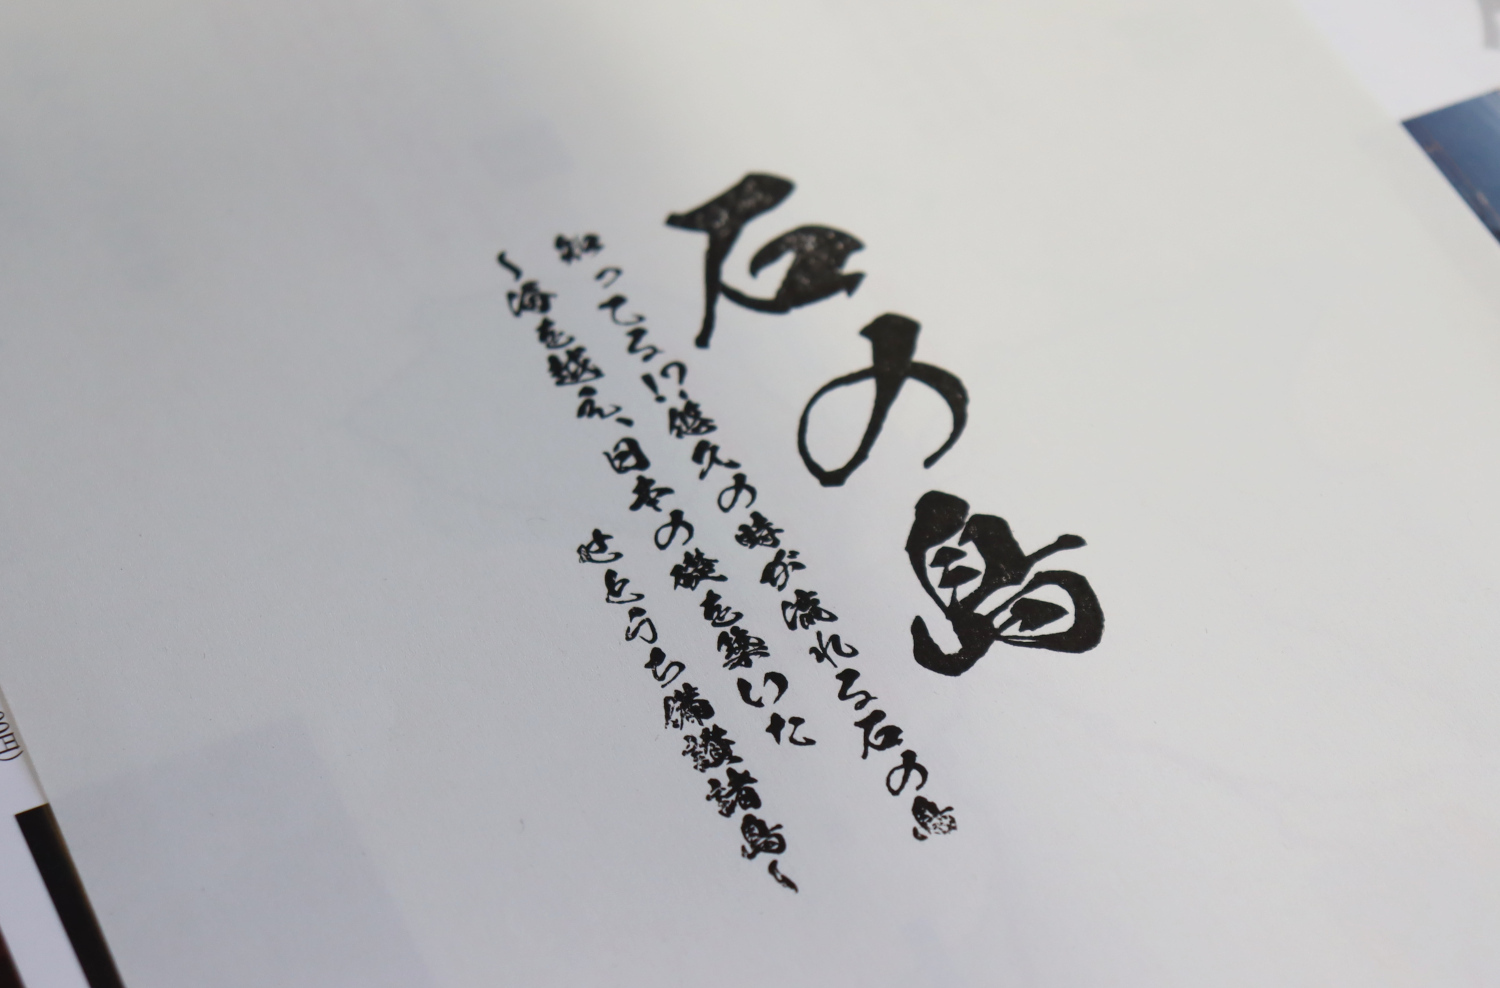 石の島
知ってる!?悠久の時が流れる石の島
〜海を越え、日本の礎を築いた
せとうち備讃諸島〜